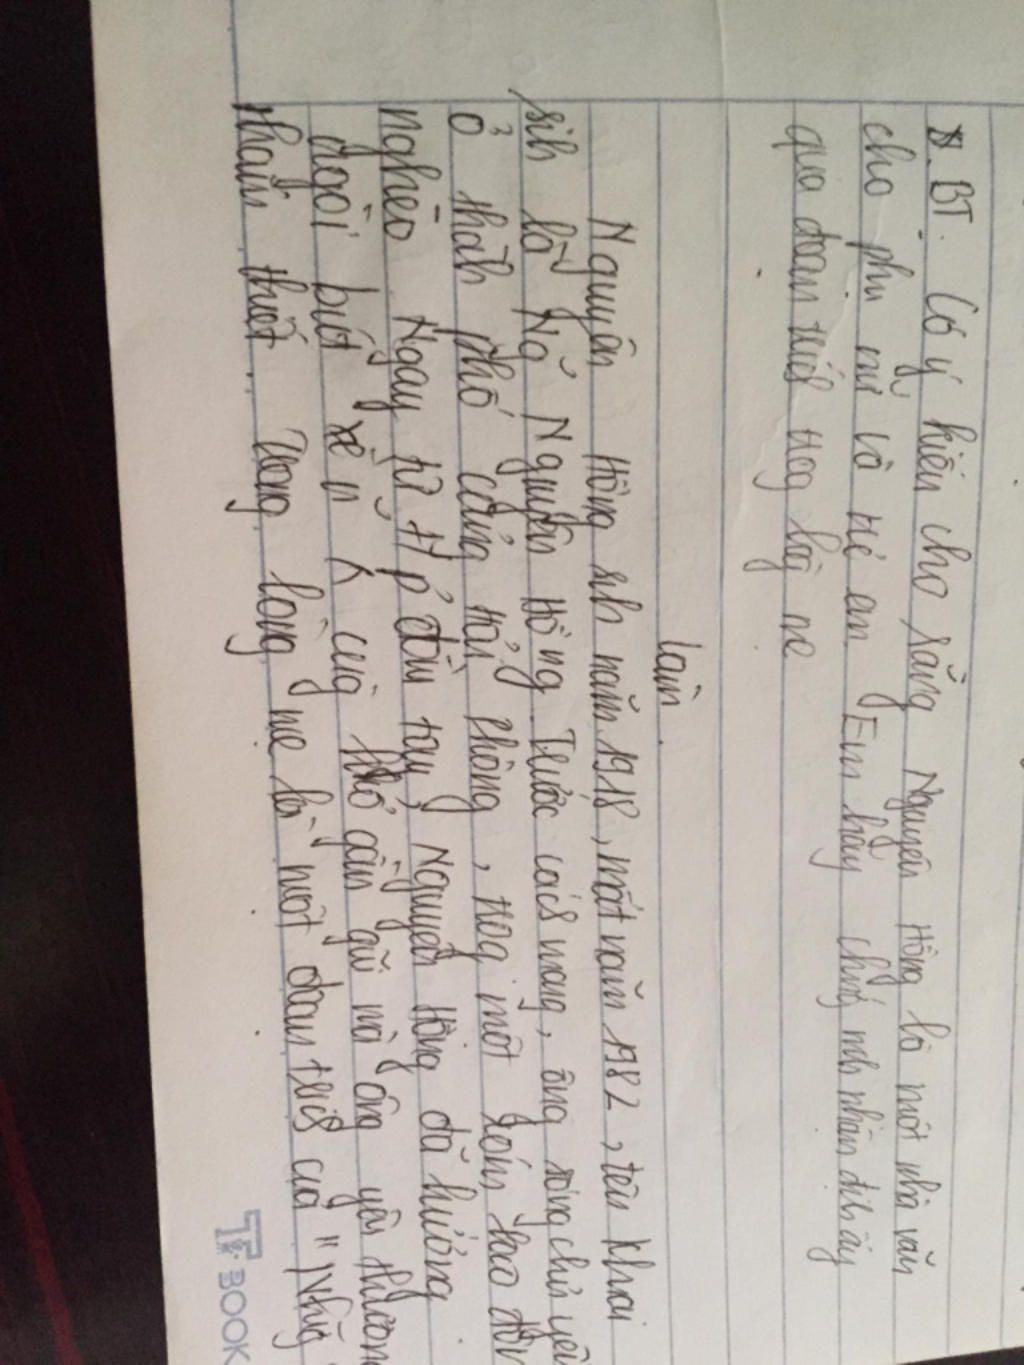 BT. Có ý kiến cho rằng Nguyên Hồng là một nhà văn
cho phụ nữ và trẻ em Em hãy chứng mh nhận định ấy
qua đoạn trích trog lòg mẹ
làm.
Nguyên Hồng sih năm 1918, mất năm 1982, tên khai
sih là Ng̃ Nguyên Hồng. Trước cách mạng, ông sống chủ yếu
ở thàh phố cảng Hải Phòng, trog một xóm lao độn
nghèo Ngay từ t/p' đầu tay, Nguyên Hồng đã hướng
ngòi bút về n~ cùng khổ gần gũi mà ông yêu thương
thắm thiết. Trong lòng mẹ là một đoạn trích của "Nhữg
BOOK